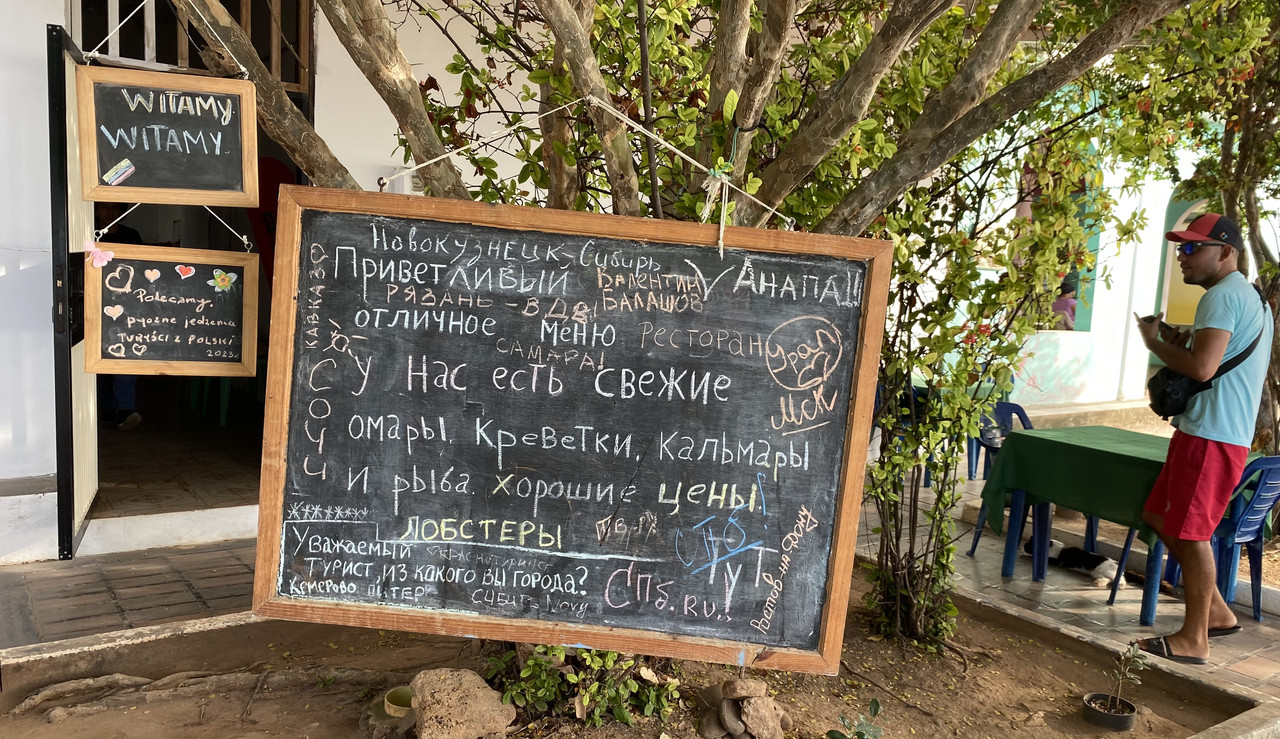 WITAMY
WITAMY
Polecamy
pyszne jedzenie
TURYŚCI Z POLSKI
2023r
Новокузнецк-Сибирь
Приветливый
ВАЛЕНТИН
БАЛАШОВ
У АНАПА!!
РЯЗАНЬ - ВДВ
КАВКАЗ
отличное меню ресторан
САМАРА!
Урал
МСК
СОЧИ
У нас есть свежие
омары, креветки, кальмары
и рыба. хорошие цены!
ЛОБСТЕРЫ
ТУТ
Уважаемый
турист, из какого вы города?
Кемерово ПИТЕР
Сибирь
СПб.RU!
Ростов-на-Дону